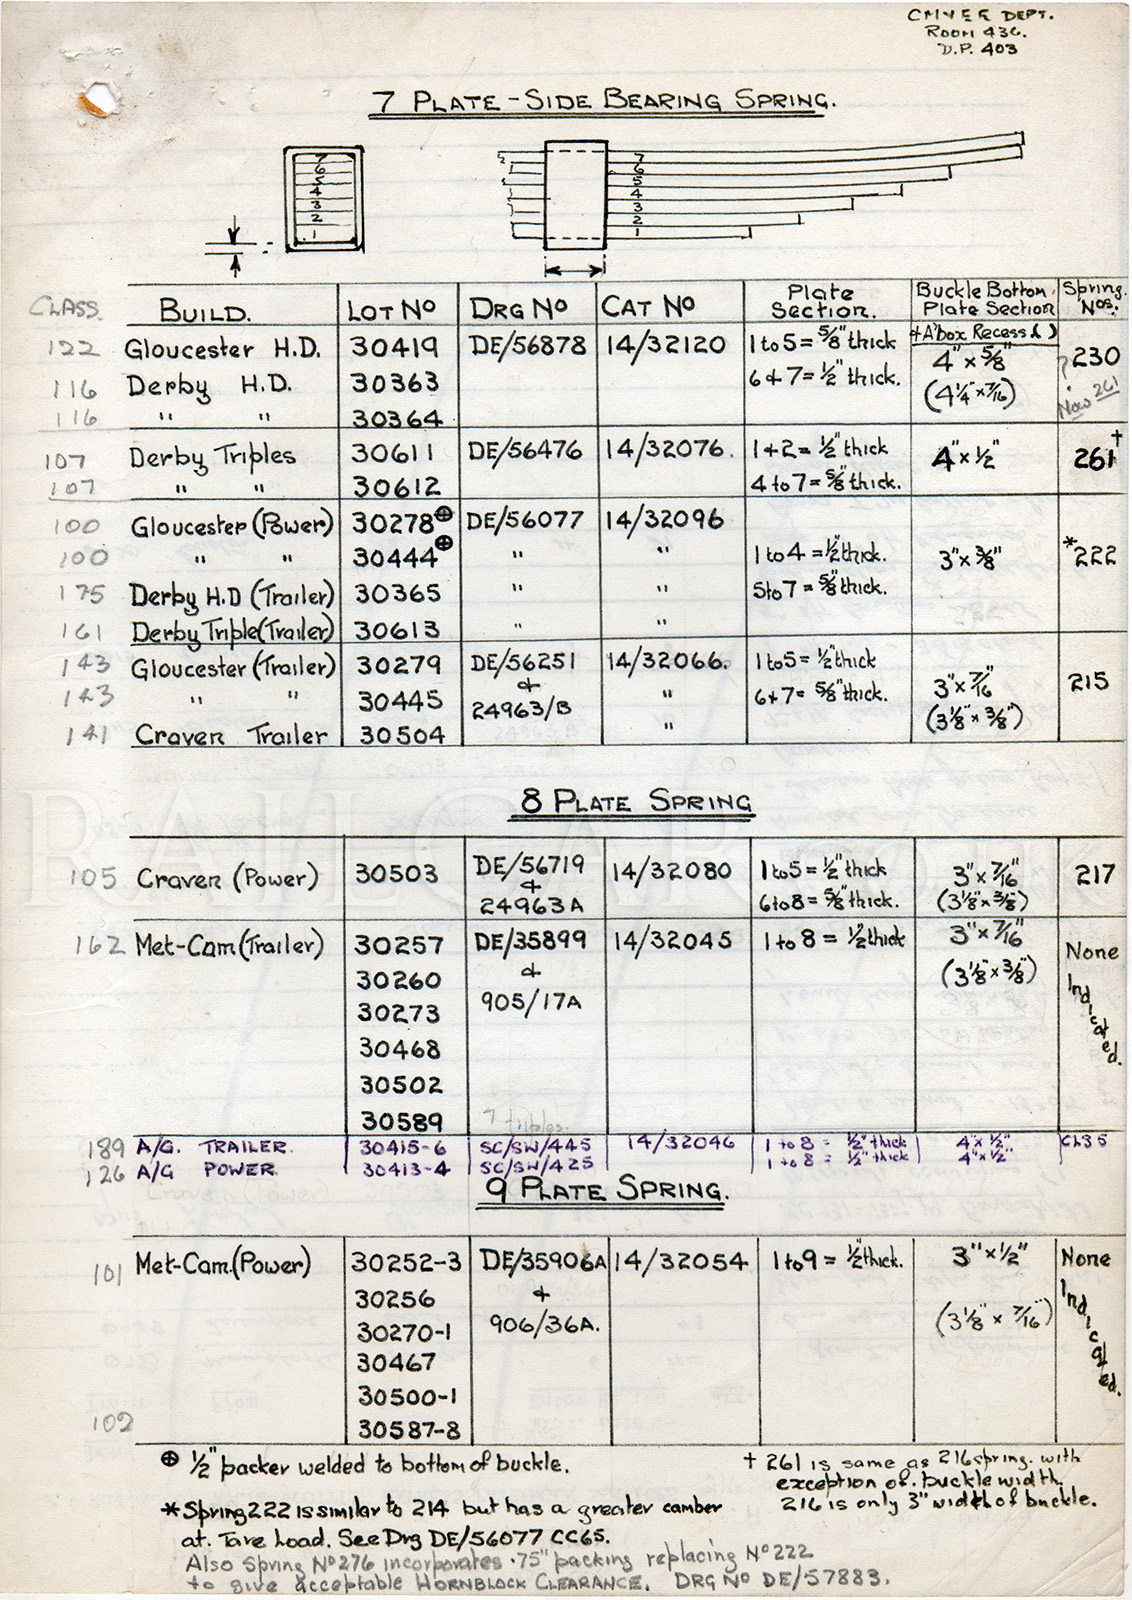 CM&EE DEPT.
ROOM 436.
D.P. 403
7 PLATE-SIDE BEARING SPRING.
7 7
6 6
5 5
4 4
3 3
2 2
1 1
CLASS. BUILD. LOT No DRG No CAT No Plate Section. Buckle Bottom Plate Section + A'box Recess ( ) Spring Nos.
122 Gloucester H.D. 30419 DE/56878 14/32120 1 to 5 = 5/8" thick 4" x 5/8" 230
116 Derby H.D. 30363 6 + 7 = 1/2" thick. (4 1/4" x 7/16") ? Now 261
116 " " 30364
107 Derby Triples 30611 DE/56476 14/32076. 1 + 2 = 1/2" thick 4" x 1/2" 261†
107 " " 30612 4 to 7 = 5/8" thick.
100 Gloucester (Power) 30278⊕ DE/56077 14/32096
100 " " 30444⊕ " " 1 to 4 = 1/2" thick. 3" x 3/8" *222
175 Derby H.D (Trailer) 30365 " " 5 to 7 = 5/8" thick.
161 Derby Triple (Trailer) 30613 " "
143 Gloucester (Trailer) 30279 DE/56251 14/32066. 1 to 5 = 1/2" thick 3" x 7/16" 215
143 " " 30445 & 24963/B " 6 + 7 = 5/8" thick. (3 1/8" x 3/8")
141 Craven Trailer 30504 "
8 PLATE SPRING
105 Craven (Power) 30503 DE/56719 14/32080 1 to 5 = 1/2" thick 3" x 7/16" 217
& 24963A 6 to 8 = 5/8" thick. (3 1/8" x 3/8")
162 Met-Cam (Trailer) 30257 DE/35899 14/32045 1 to 8 = 1/2" thick 3" x 7/16" None Indicated.
30260 & (3 1/8" x 3/8")
30273 905/17A
30468
30502
30589 7 triples.
189 A/G. TRAILER. 30415-6 SC/SW/445 14/32046 1 to 8 = 1/2" thick 4" x 1/2" C135
126 A/G POWER 30413-4 SC/SW/425 1 to 8 = 1/2" thick 4" x 1/2"
9 PLATE SPRING.
101 Met-Cam. (Power) 30252-3 DE/35906A 14/32054 1 to 9 = 1/2" thick. 3" x 1/2" None Indicated.
30256 &
30270-1 906/36A. (3 1/8" x 7/16")
30467
30500-1
102 30587-8
⊕ 1/2" packer welded to bottom of buckle.
† 261 is same as 216 spring. with
exception of. buckle width.
216 is only 3" width of buckle.
* Spring 222 is similar to 214 but has a greater camber
at. Tare Load. See Drg DE/56077 CC65.
Also Spring No 276 incorporates .75" packing replacing No 222
to give acceptable HORNBLOCK CLEARANCE. DRG No DE/57883.
RAILCAR.CO.UK